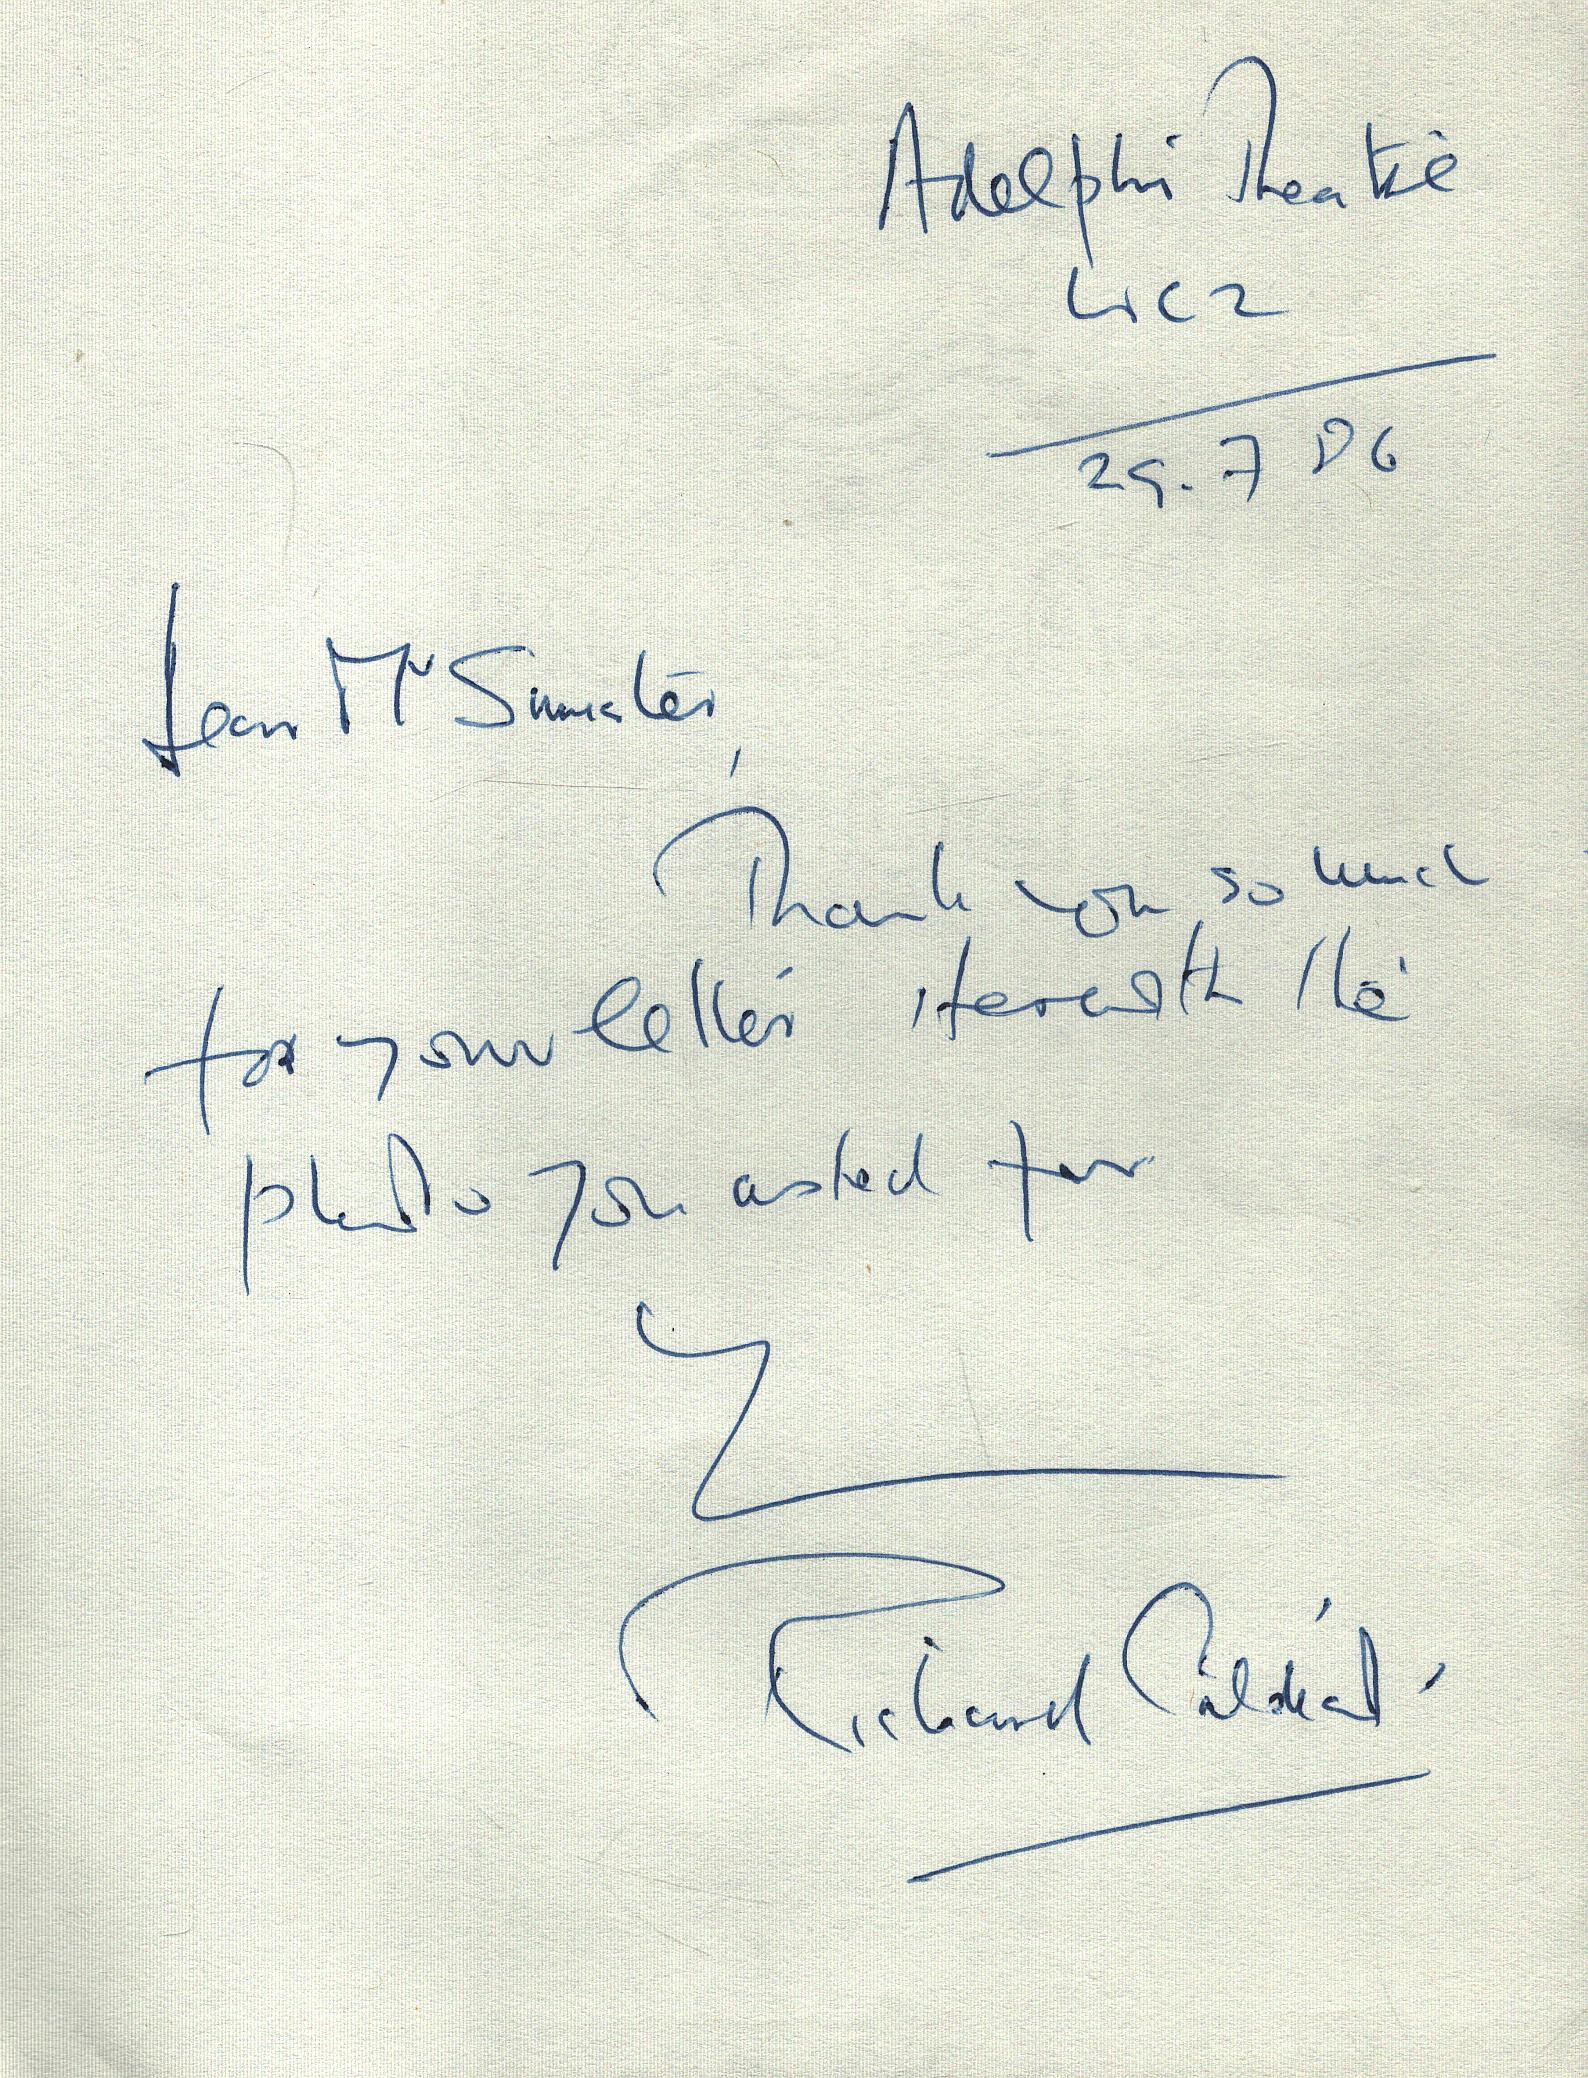 Adelphi Theatre
WC2
29.7 86
Dear Mr
Thank you so much
for your letter, herewith the
photo you asked for
Richard Caldicot